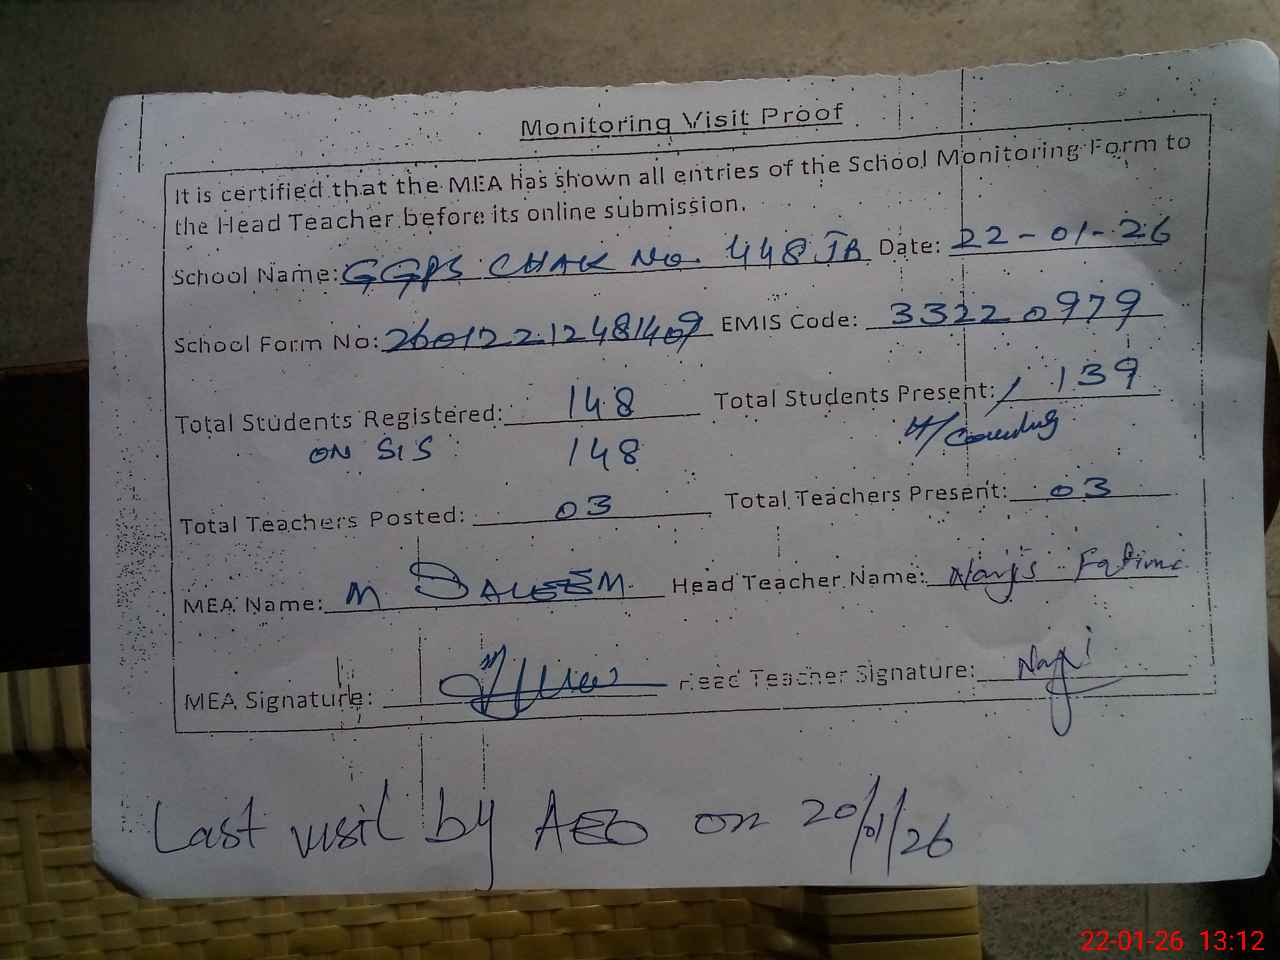 Monitoring Visit Proof
It is certified that the MEA has shown all entries of the School Monitoring Form to
the Head Teacher before its online submission.
School Name: GGPS CHAK No. 448 JB Date: 22-01-26
School Form No: 26012212481409 EMIS Code: 33220979
Total Students Registered: 148 Total Students Present: 139
ON SIS 148
Total Teachers Posted: 03 Total Teachers Present: 03
MEA Name: M SALEEM Head Teacher Name: Narjs Fatima
MEA Signature: Head Teacher Signature:
Last visit by AEO on 20/01/26
22-01-26 13:12